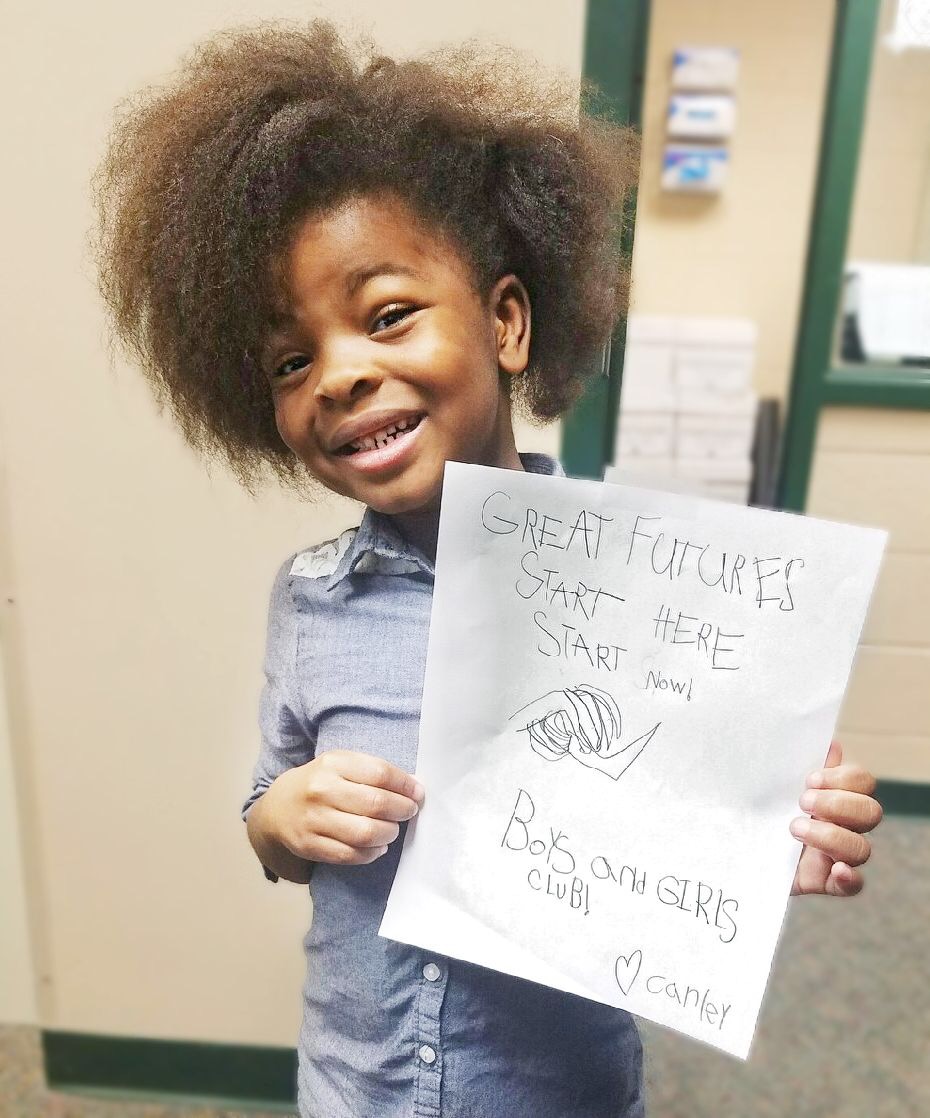 GREAT FUTURES
START HERE
START Now!
Boys and GIRLS
cLUB!
♡ canley